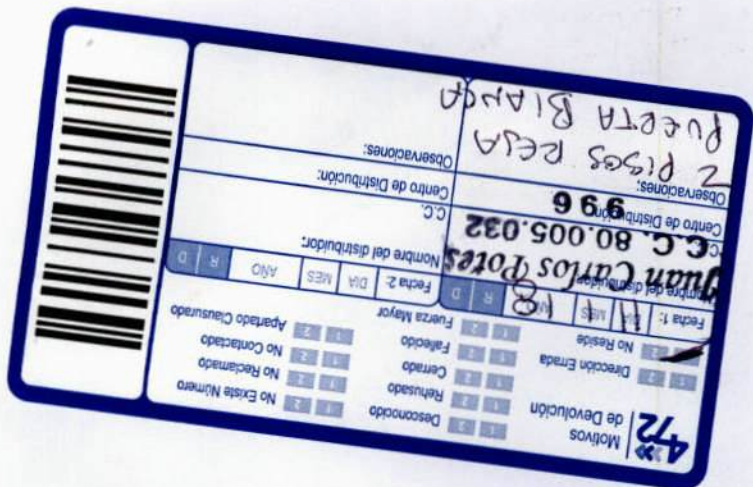 472
Motivos
de Devolución
1 2 Desconocido
1 2 Rehusado
1 2 Cerrado
1 2 Fallecido
1 2 Fuerza Mayor
1 2 No Existe Número
1 2 No Reclamado
1 2 No Contactado
1 2 Apartado Clausurado
1 2 Dirección Errada
No Reside
Fecha 1: DIA MES AÑO R D
11 1 18
Nombre del distribuidor:
Juan Carlos Potes
C.C. 80.005.032
Centro de Distribución:
996
Observaciones:
2 PISOS REJA
PUERTA BLANCA
Fecha 2: DIA MES AÑO R D
Nombre del distribuidor:
C.C.
Centro de Distribución:
Observaciones: